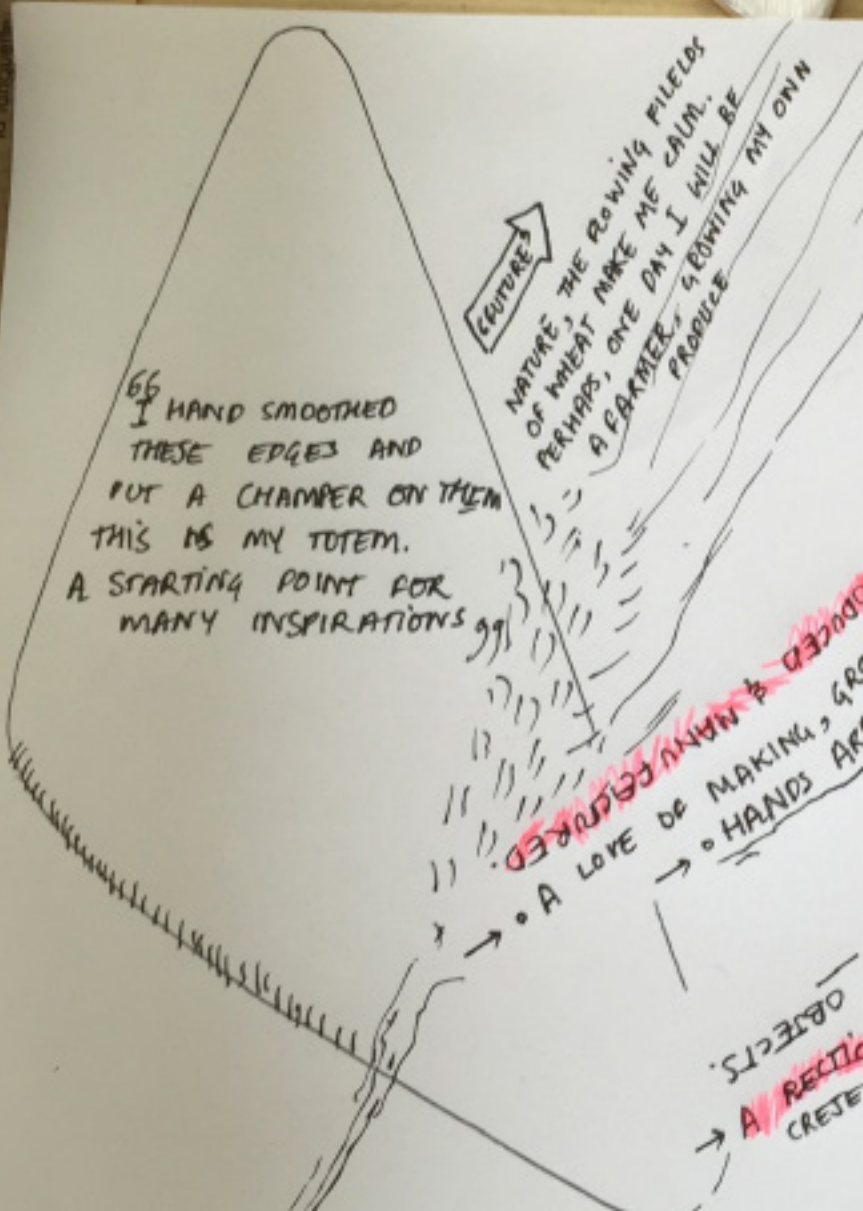 “I HAND SMOOTHED
THESE EDGES AND
PUT A CHAMFER ON THEM
THIS IS MY TOTEM.
A STARTING POINT FOR
MANY INSPIRATIONS”
"FUTURE"
NATURE, THE FLOWING FILELDS
OF WHEAT MAKE ME CALM.
PERHAPS, ONE DAY I WILL BE
A FARMER, GROWING MY OWN
PRODUCE
& MANUFERCTURED.
→ • A LOVE OF MAKING,
→ • HANDS
OBJECTS.
→ A